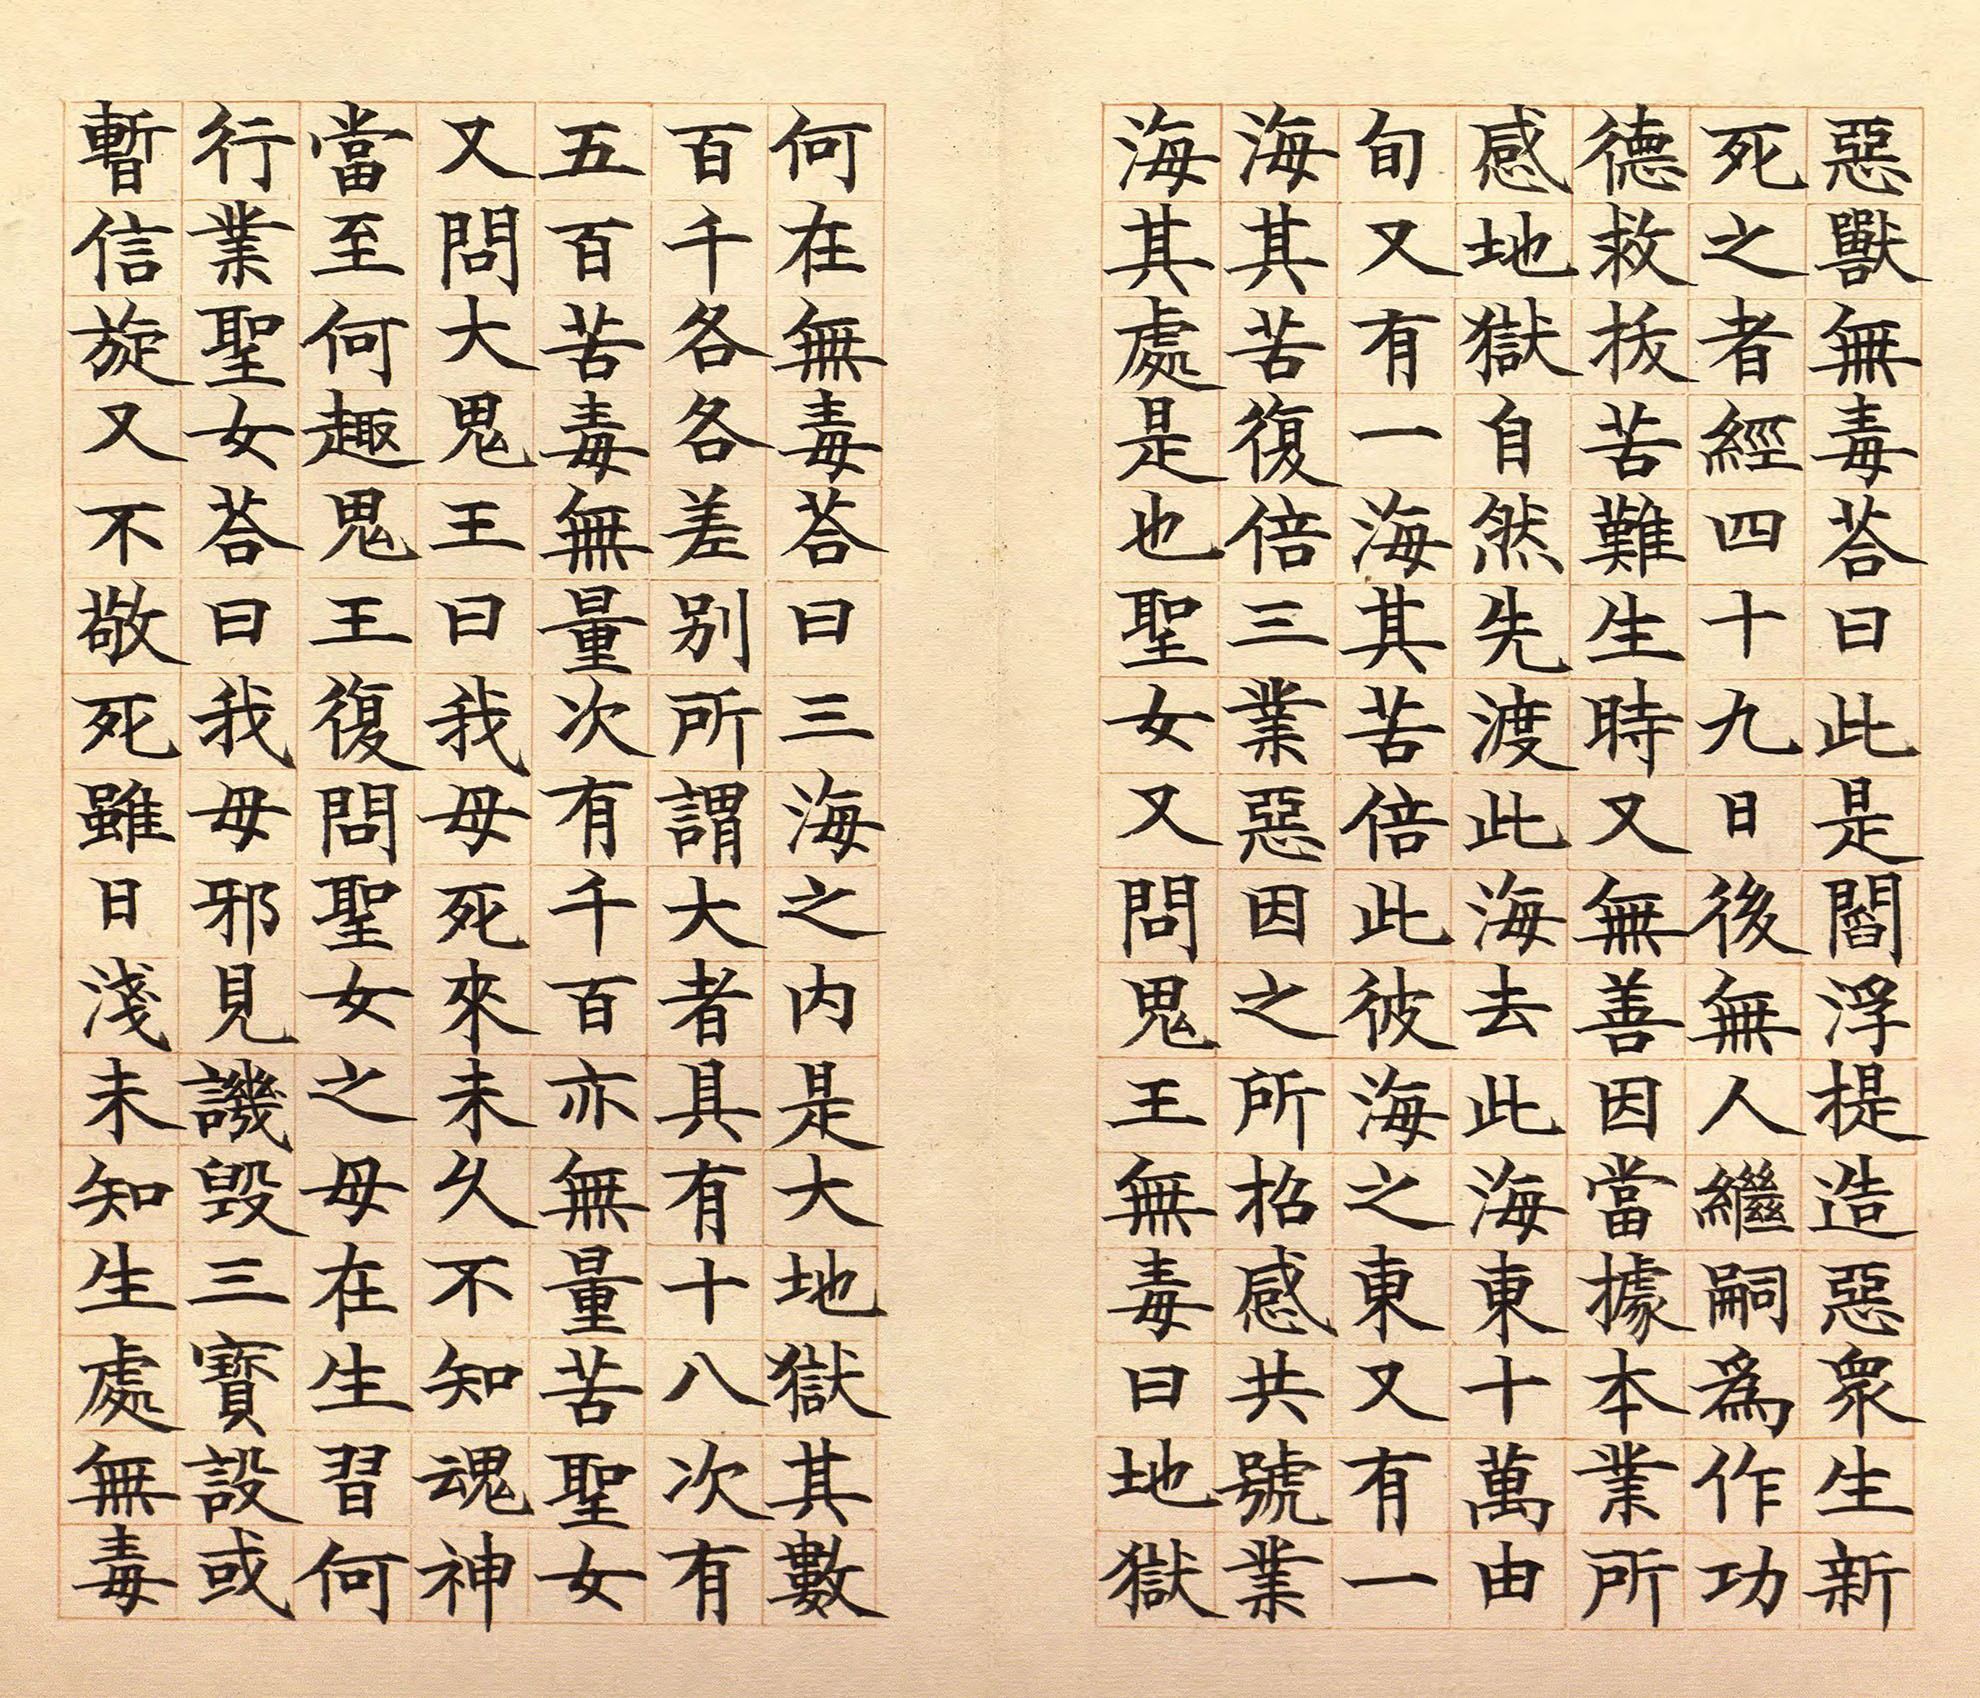 惡獸無毒荅曰此是閻浮提造惡衆生新
死之者經四十九日後無人繼嗣爲作功
德救拔苦難生時又無善因當據本業所
感地獄自然先渡此海去此海東十萬由
旬又有一海其苦倍此彼海之東又有一
海其苦復倍三業惡因之所招感共號業
海其處是也聖女又問鬼王無毒曰地獄
何在無毒荅曰三海之内是大地獄其數
百千各各差别所謂大者具有十八次有
五百苦毒無量次有千百亦無量苦聖女
又問大鬼王曰我母死來未久不知魂神
當至何趣鬼王復問聖女之母在生習何
行業聖女荅曰我母邪見譏毀三寶設或
暫信旋又不敬死雖日淺未知生處無毒